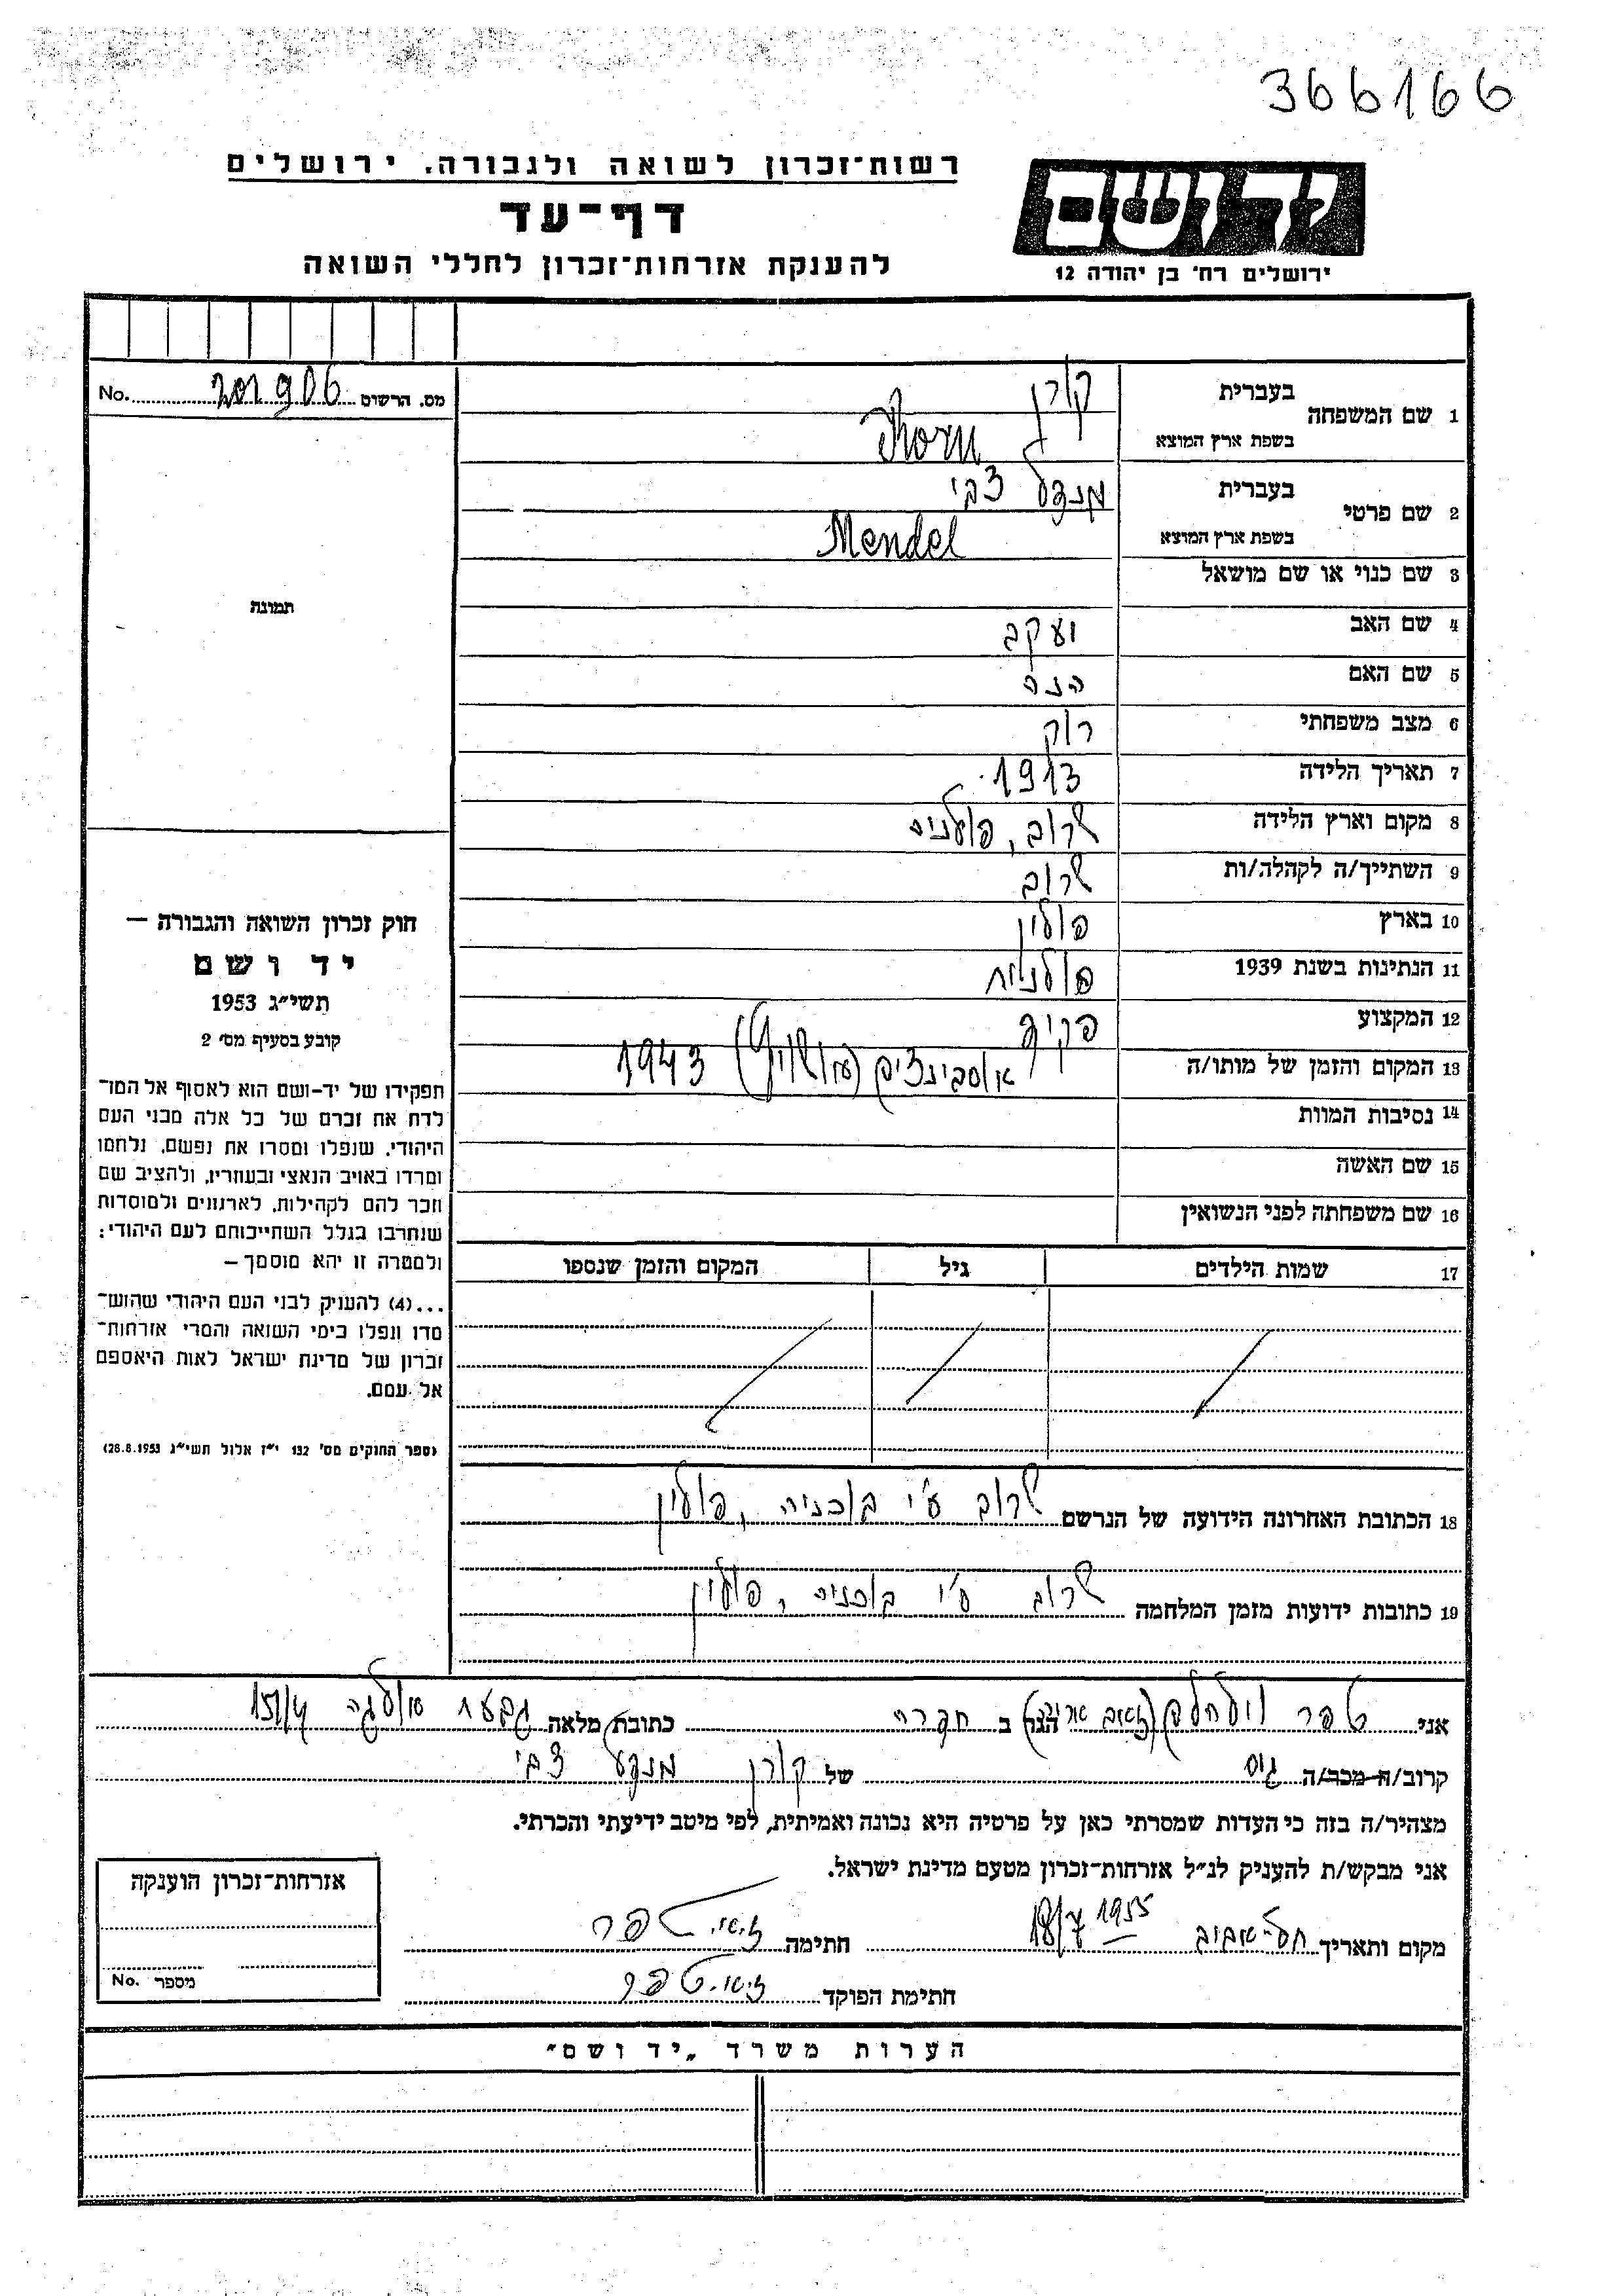 366166
רשות־זכרון לשואה ולגבורה, ירושלים
דף־עד
להענקת אזרחות־זכרון לחללי השואה
יד ושם
ירושלים רח' בן יהודה 12
מס. הרשום 201906 No.
תמונה
1 שם המשפחה בעברית קורן
בשפת ארץ המוצא Korn
2 שם פרטי בעברית מנדל צבי
בשפת ארץ המוצא Mendel
3 שם כנוי או שם מושאל
4 שם האב יעקב
5 שם האם הנה
6 מצב משפחתי רוק
7 תאריך הלידה 1913
8 מקום וארץ הלידה פולניה
9 השתייך/ה לקהלה/ות
10 בארץ פולין
11 הנתינות בשנת 1939 פולנית
12 המקצוע פקיד
13 המקום והזמן של מותו/ה 1943
14 נסיבות המוות
15 שם האשה
16 שם משפחתה לפני הנשואין
17 שמות הילדים גיל המקום והזמן שנספו
18 הכתובת האחרונה הידועה של הנרשם ע"י בוכניה, פולין
19 כתובות ידועות מזמן המלחמה ע"י בוכניה, פולין
חוק זכרון השואה והגבורה —
יד ושם
תשי"ג 1953
קובע בסעיף מס' 2
תפקידו של יד־ושם הוא לאסוף אל המו־
לדת את זכרם של כל אלה מבני העם
היהודי, שנפלו ומסרו את נפשם, נלחמו
ומרדו באויב הנאצי ובעוזריו, ולהציב שם
וזכר להם לקהילות, לארגונים ולמוסדות
שנחרבו בגלל השתייכותם לעם היהודי;
ולמטרה זו יהא מוסמך —
...(4) להעניק לבני העם היהודי שהוש־
מדו ונפלו בימי השואה והמרי אזרחות־
זכרון של מדינת ישראל לאות היאספם
אל עמם.
(ספר החוקים מס' 132 י"ז אלול תשי"ג 28.8.1953)
אני הגר ב חדרה כתובת מלאה גבעת אולגה 151/4
קרוב/ה מכר/ה גיס של קורן מנדל צבי
מצהיר/ה בזה כי העדות שמסרתי כאן על פרטיה היא נכונה ואמיתית, לפי מיטב ידיעתי והכרתי.
אני מבקש/ת להעניק לנ"ל אזרחות־זכרון מטעם מדינת ישראל.
מקום ותאריך תל־אביב 18/7 1955 חתימה
חתימת הפוקד
אזרחות־זכרון הוענקה
מספר No.
הערות משרד "יד ושם"